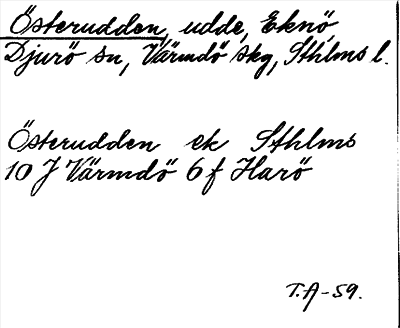 Österudden, udde, Eknö
Djurö sn, Värmdö skg, Sthlms l.
Österudden ek Sthlms
10 J Värmdö 6 f Harö
T.A-59.